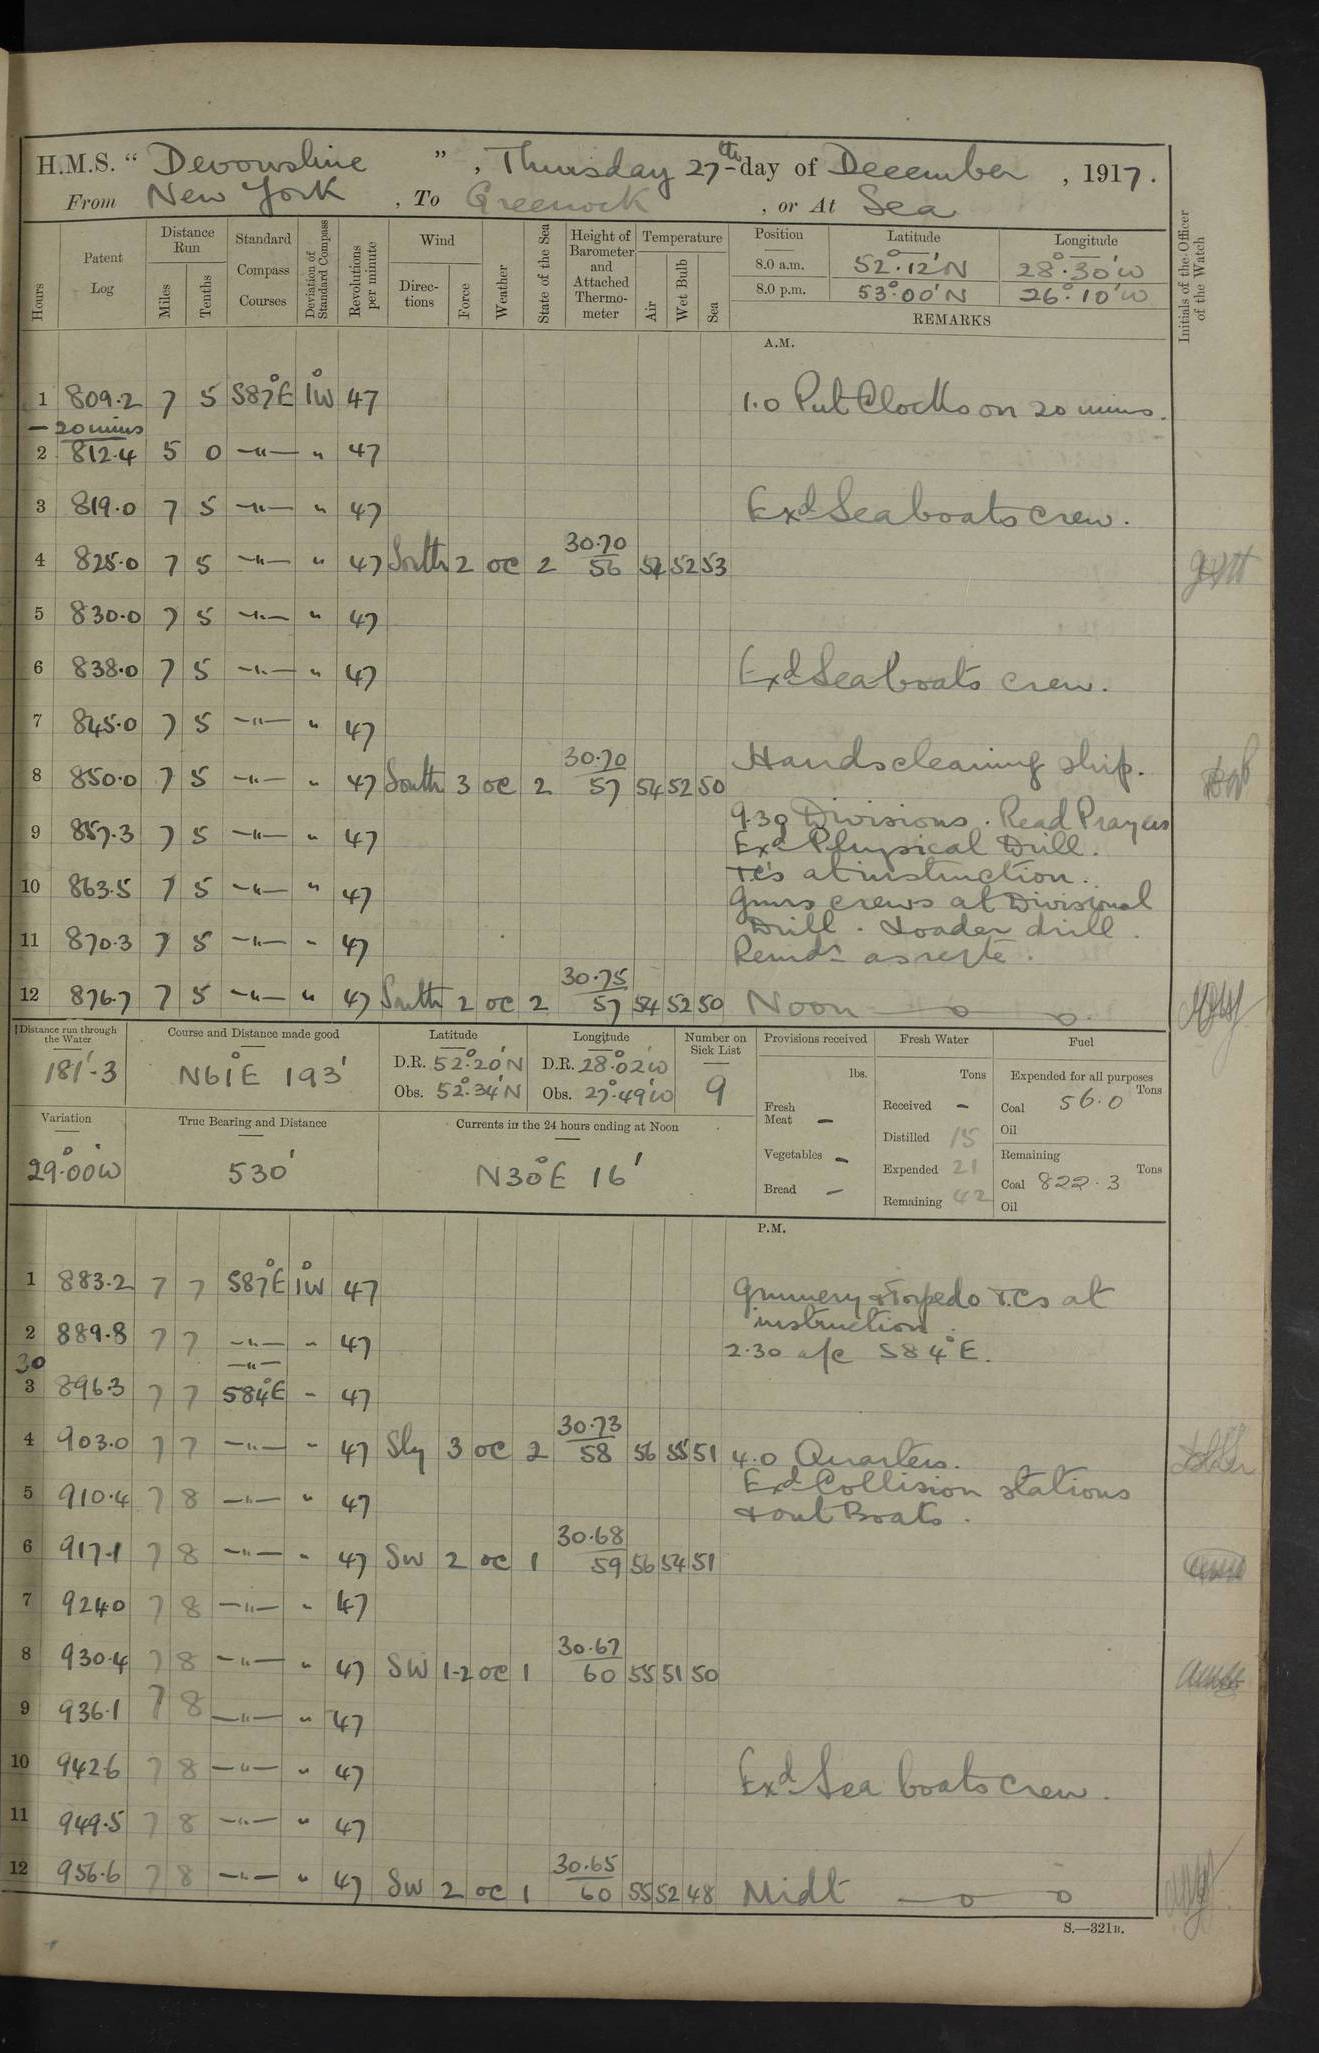 H.M.S. " Devonshire ", Thursday 27th day of December, 1917.
From New York, To Greenock, or At Sea
Hours
Patent Log
Distance Run
Miles
Tenths
Standard Compass Courses
Deviation of Standard Compass
Revolutions per minute
Wind
Directions
Force
Weather
State of the Sea
Height of Barometer and Attached Thermometer
Temperature
Air
Wet Bulb
Sea
Position
Latitude
Longitude
8.0 a.m. 52°.12'N 28°.30'W
8.0 p.m. 53°.00'N 26°.10'W
REMARKS
Initials of the Officer of the Watch
A.M.
1 809.2 7 5 S87°E 1°W 47 1.0 Put Clocks on 20 mins.
- 20 mins
2 812.4 5 0 —"— " 47
3 819.0 7 5 —"— " 47 Exd Seaboats crew.
4 825.0 7 5 —"— " 47 South 2 oc 2 30.70 56 54 52 53
5 830.0 7 5 —"— " 47
6 838.0 7 5 —"— " 47 Exd Seaboats crew.
7 845.0 7 5 —"— " 47
8 850.0 7 5 —"— " 47 South 3 oc 2 30.70 57 54 52 50 Hands cleaning ship.
9 857.3 7 5 —"— " 47 9.30 Divisions. Read Prayers
Exd Physical Drill.
10 863.5 7 5 —"— " 47 T.C's at instruction.
Guns crews at Divisional
11 870.3 7 5 —"— " 47 Drill. Loader drill.
Remdr as reqte.
12 876.7 7 5 —"— " 47 South 2 oc 2 30.75 57 54 52 50 Noon
Distance run through the Water
181'.3
Course and Distance made good
N61°E 193'
Latitude
D.R. 52°.20'N
Obs. 52°.34'N
Longitude
D.R. 28°.02'W
Obs. 27°.49'W
Number on Sick List
9
Provisions received
lbs.
Fresh Meat -
Vegetables -
Bread -
Fresh Water
Tons
Received -
Distilled 15
Expended 21
Remaining 42
Fuel
Expended for all purposes
Tons
Coal 56.0
Oil
Remaining
Tons
Coal 822.3
Oil
Variation
29°.00'W
True Bearing and Distance
530'
Currents in the 24 hours ending at Noon
N30°E 16'
P.M.
1 883.2 7 7 S87°E 1°W 47 Gunnery & Torpedo T.Cs at
instruction.
2 889.8 7 7 —"— " 47 2.30 a/c S84°E.
30 —"—
3 896.3 7 7 S84°E " 47
4 903.0 7 7 —"— " 47 Sly 3 oc 2 30.73 58 56 55 51 4.0 Quarters.
Exd Collision stations
5 910.4 7 8 —"— " 47 & out Boats.
6 917.1 7 8 —"— " 47 SW 2 oc 1 30.68 59 56 54 51
7 924.0 7 8 —"— " 47
8 930.4 7 8 —"— " 47 SW 1-2 oc 1 30.67 60 55 51 50
9 936.1 7 8 —"— " 47
10 942.6 7 8 —"— " 47 Exd Sea boats crew.
11 949.5 7 8 —"— " 47
12 956.6 7 8 —"— " 47 SW 2 oc 1 30.65 60 55 52 48 Midt
S.—321B.